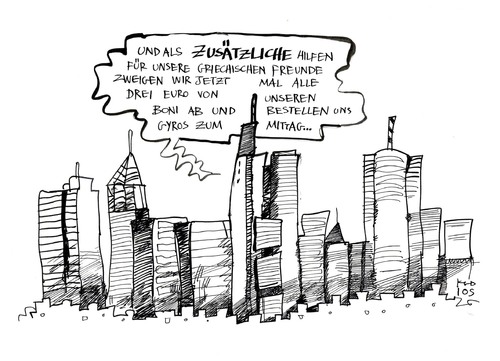 UND ALS ZUSÄTZLICHE HILFEN
FÜR UNSERE GRIECHISCHEN FREUNDE
ZWEIGEN WIR JETZT MAL ALLE
DREI EURO VON UNSEREN
BONI AB UND BESTELLEN UNS
GYROS ZUM MITTAG...